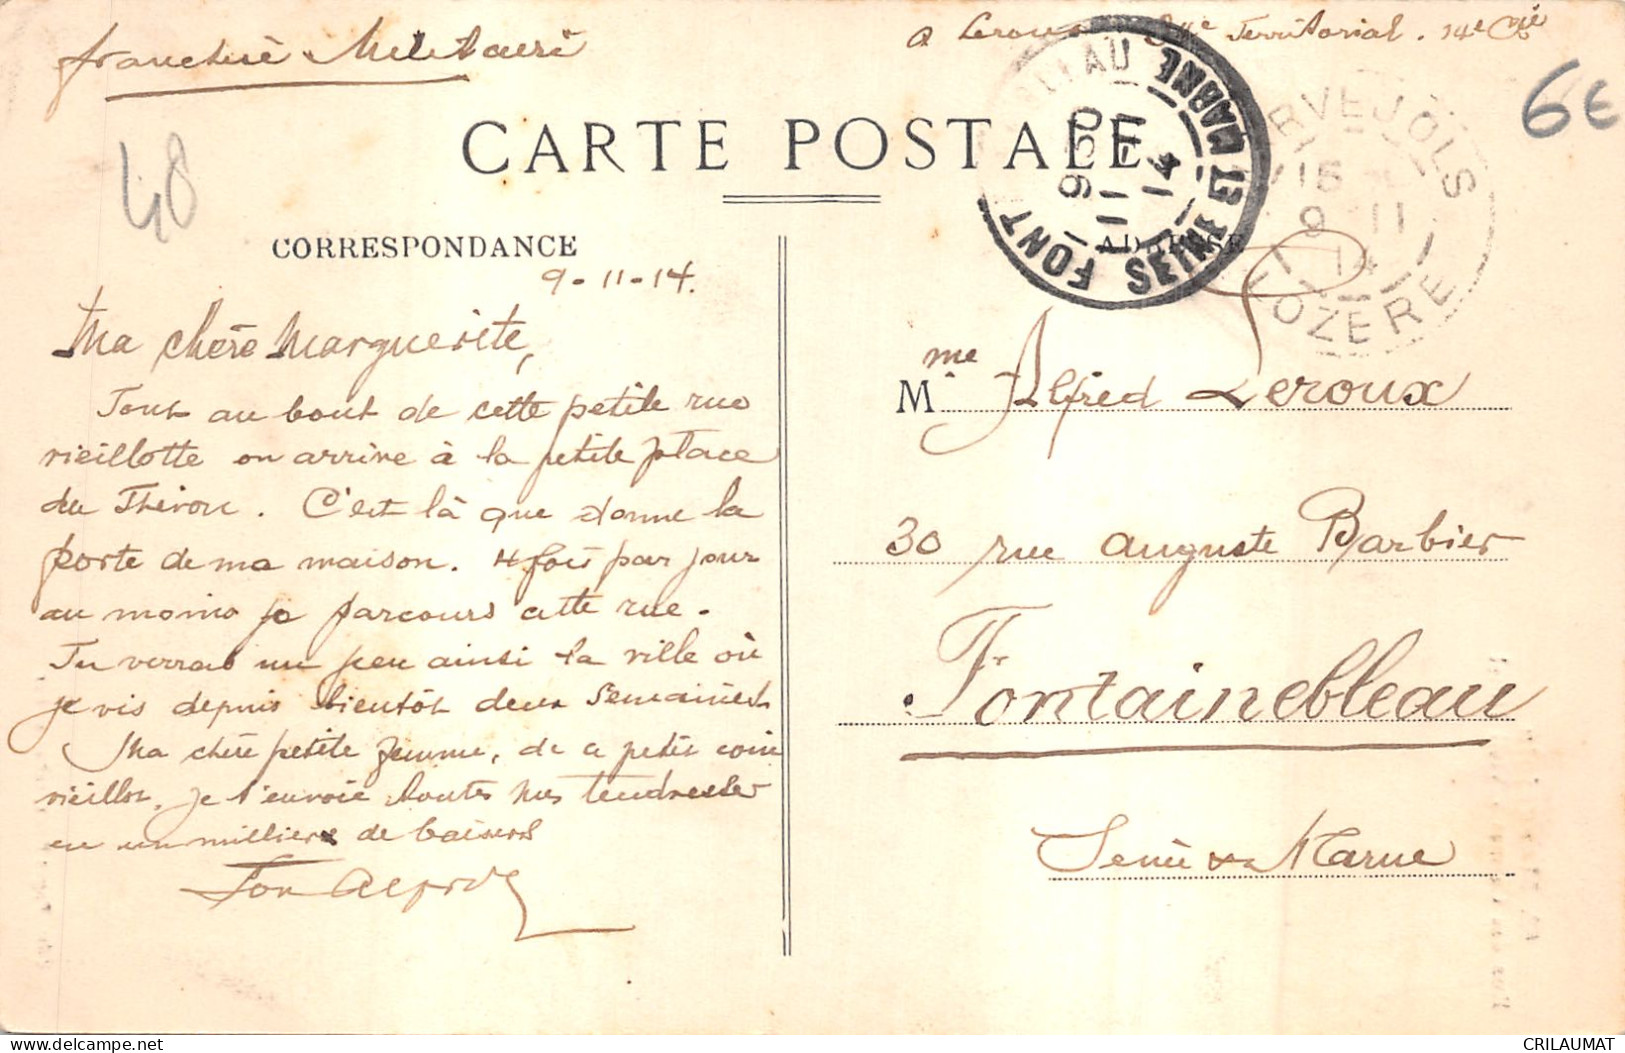 franchise Militaire
A Leroux Territorial. 14e Cie
6€
48
CARTE POSTALE
CORRESPONDANCE
ADRESSE
FONT EAU
9 50
11
14
SEINE ET MARNE
RVEJOLS
15
9 11
14
LOZERE
9-11-14.
Ma chère Marguerite,
Tout au bout de cette petite rue
vieillotte on arrive à la petite place
du Thérou. C'est là que donne la
porte de ma maison. 4 fois par jour
au moins je parcours cette rue.
Tu verras un peu ainsi la ville où
je vis depuis bientôt deux semaines
Ma chère petite femme, de ce petit coin
vieillot, je t'envoie toutes mes tendresses
en un millier de baisers
Ton Alfred
Mme Alfred Leroux
30 rue Auguste Barbier
Fontainebleau
Seine & Marne
CRILAUMAT